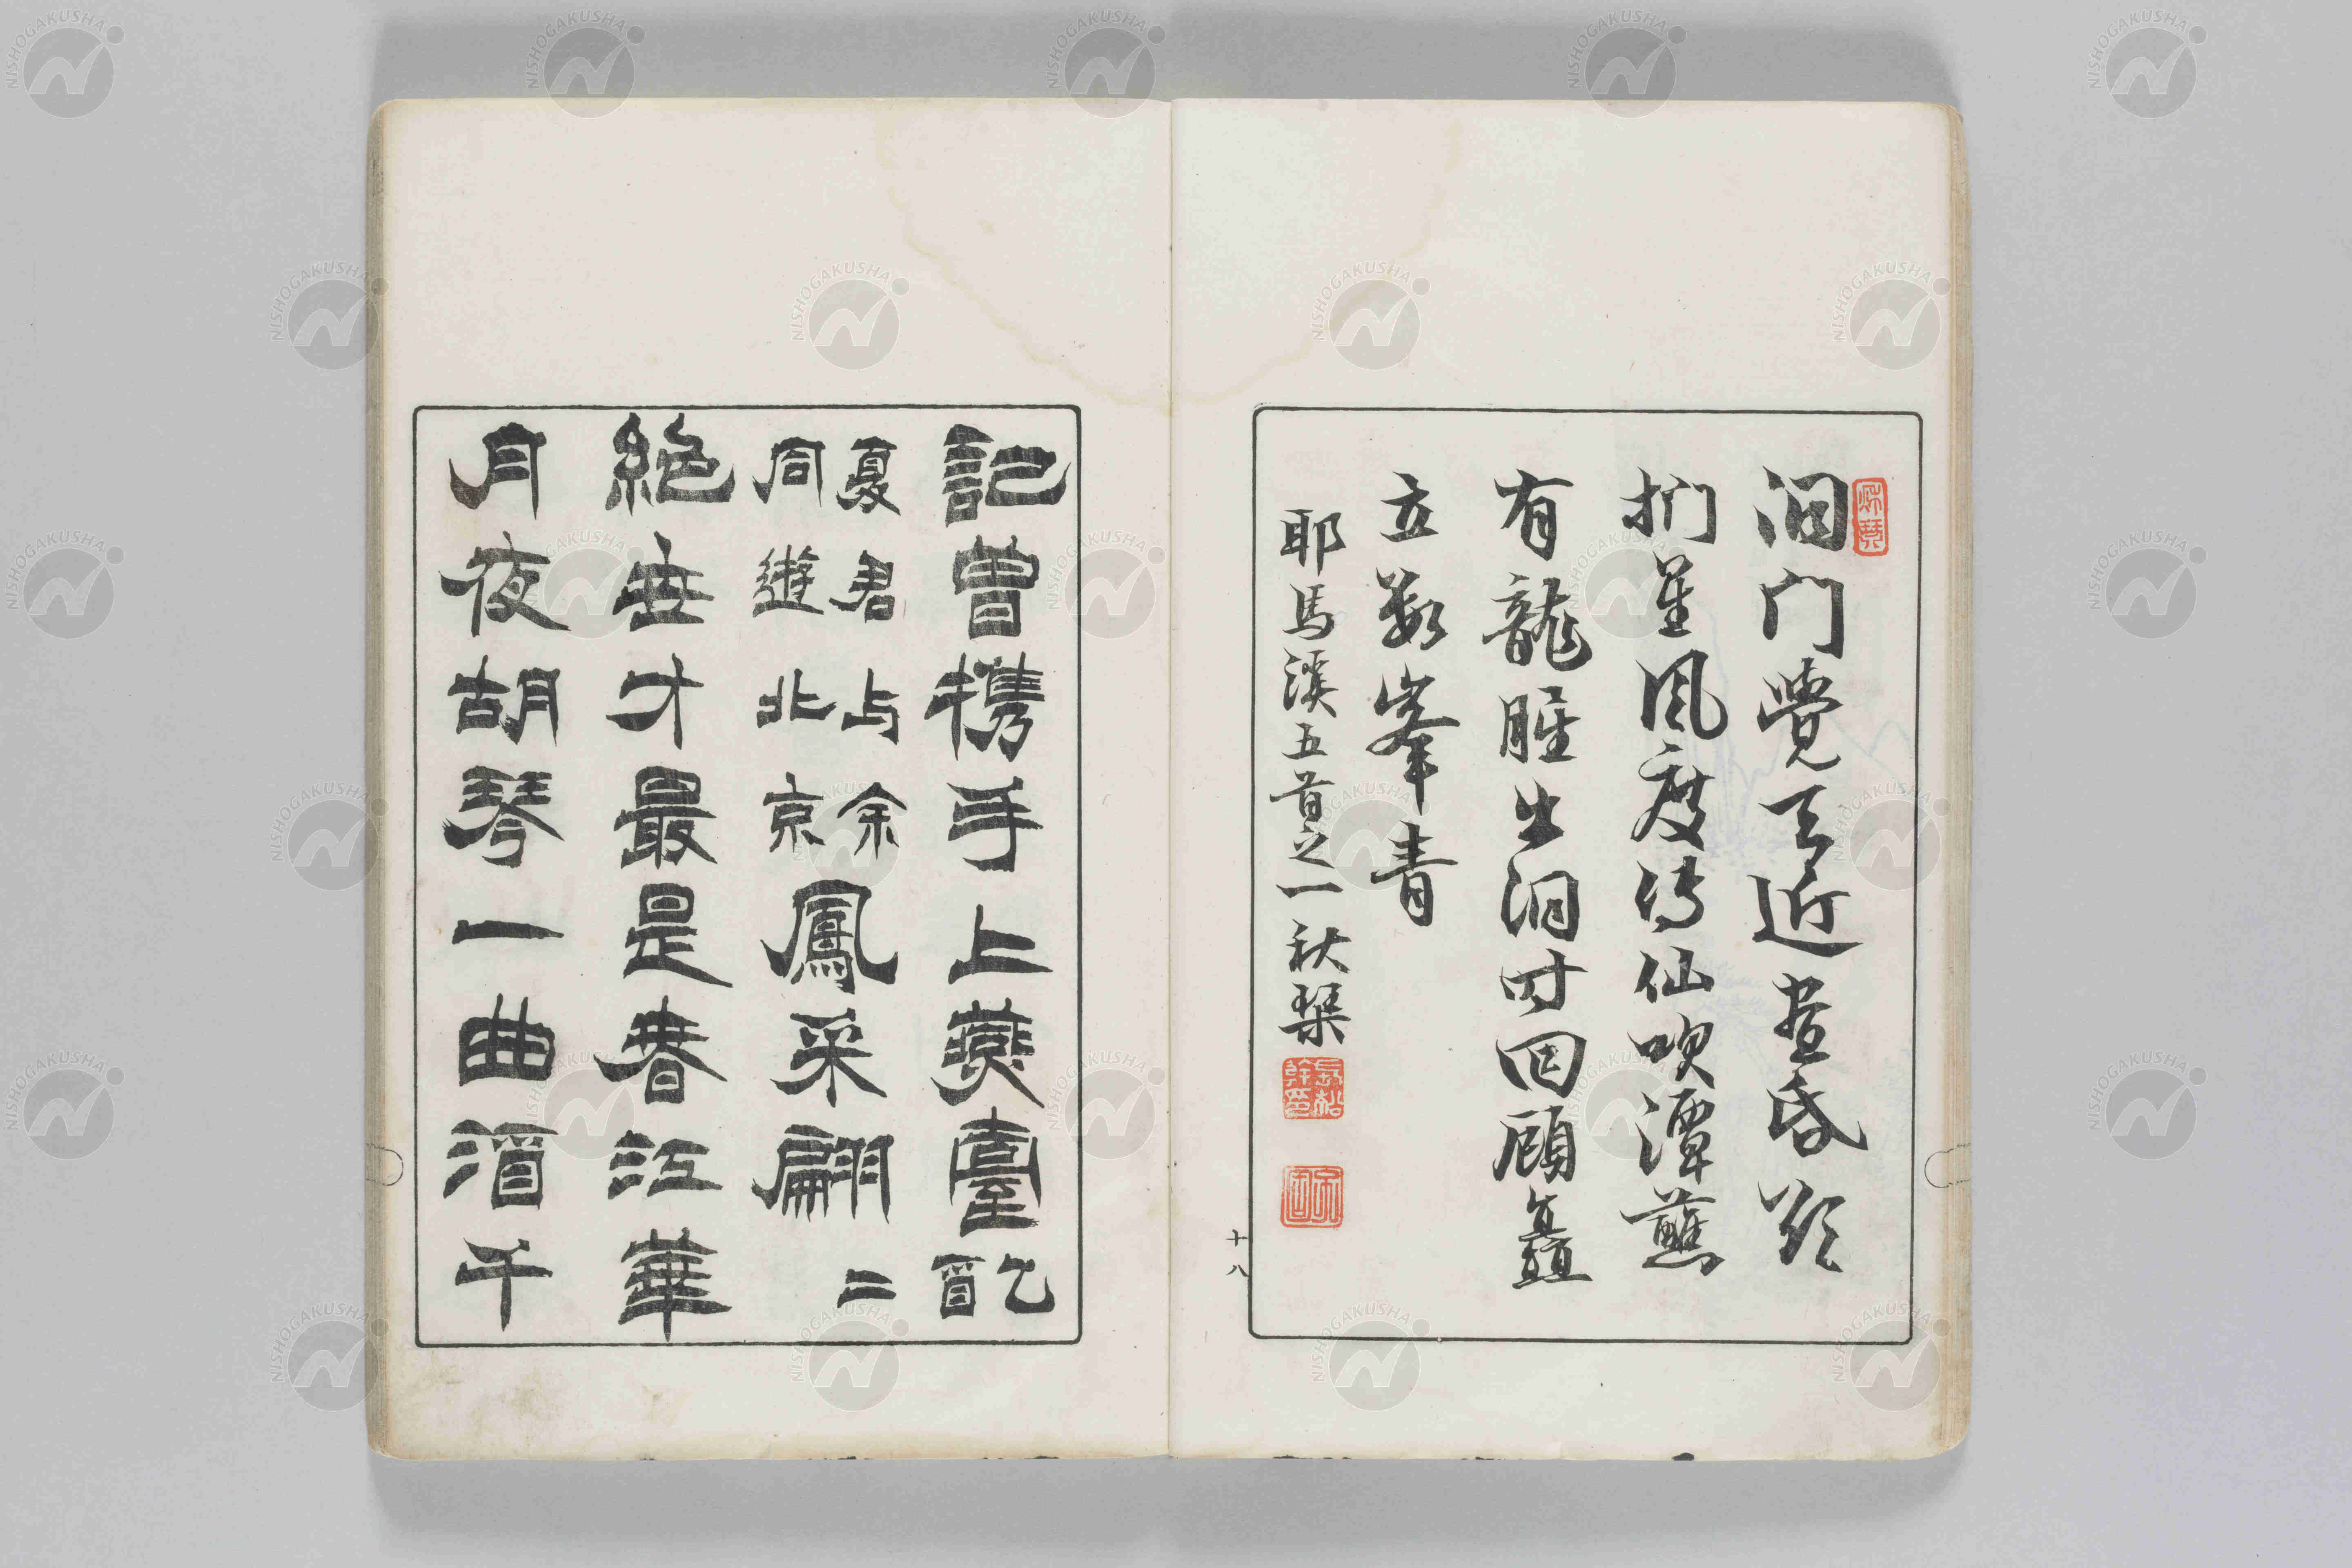 洞门覺天近晝昏欲
捫星風度傳仙吹潭蘸
有龍腥出洞时回顧矗
立數峯青
耶馬溪五首之一 秋琹
十八
記曾携手上燕臺乙酉
夏君与余同遊北京鳳采翩二
絶世才最是春江華
月夜胡琴一曲酒千
NISHOGAKUSHA